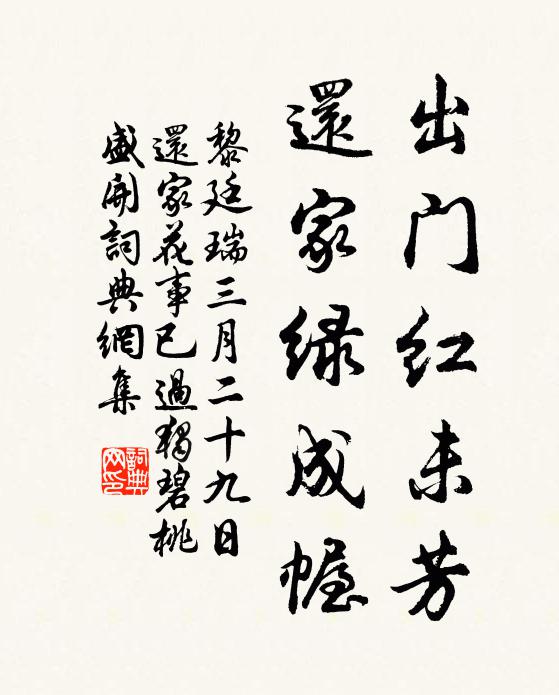 出门红未芳
還家绿成幄
黎廷瑞三月二十九日
還家花事已過獨碧桃
盛開詞典網集
詞典網印